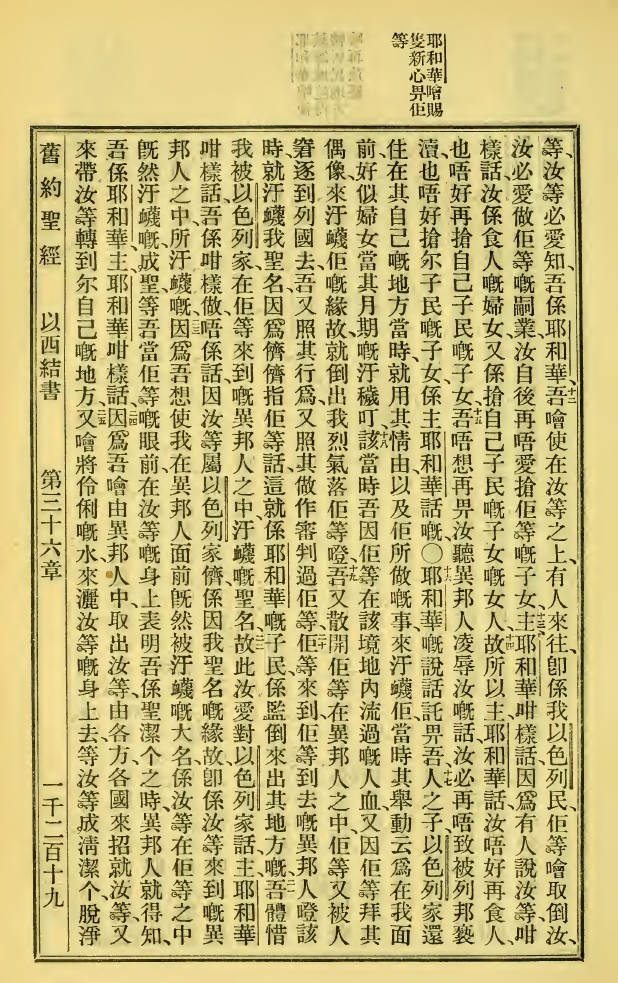 耶和華噲賜
雙新心畀佢
等
等、汝等必愛知、吾係耶和華、十二吾噲使在汝等之上、有人來往、卽係我以色列民、佢等噲取倒汝、
汝必愛做佢等嘅嗣業、汝自後再唔愛搶佢等嘅子女、十三主耶和華咁樣話、因爲有人說汝等、咁
樣話汝係食人嘅婦女、又係搶自己子民嘅子女嘅女人、十四故所以主耶和華話、汝唔好再食人、
也唔好再搶自己子民嘅子女、十五吾唔想再畀汝聽異邦人凌辱汝嘅話、汝必再唔致被列邦褻
瀆、也唔好搶尔子民嘅子女、係主耶和華話嘅、〇十六耶和華嘅說話託畀吾、十七人之子、以色列家還
住在其自己嘅地方當時、就用其情由以及佢所做嘅事、來汙衊佢、當時其舉動云爲在我面
前、好似婦女當其月期嘅汙穢叮、十八該當時吾因佢等在該境地內流過嘅人血、又因佢等拜其
偶像來汙衊佢嘅緣故、就倒出我烈氣落佢等嶝、十九吾又散開佢等在異邦人之中、佢等又被人
窘逐到列國去、吾又照其行爲、又照其做作審判過佢等、二十佢等來到佢等到去嘅異邦人嶝該
時、就汙衊我聖名、因爲儕儕指佢等話、這就係耶和華嘅子民、係監倒來出其地方嘅、二一吾體惜
我被以色列家在佢等來到嘅異邦人之中、汙衊嘅聖名、二二故此汝愛對以色列家話、主耶和華
咁樣話、吾係咁樣做、唔係話因汝等屬以色列家儕、係因我聖名嘅緣故、卽係汝等來到嘅異
邦人之中、所汙衊嘅、二三因爲吾想使我在異邦人面前旣然被汙衊嘅大名、係汝等在佢等之中
旣然汙衊嘅、成聖等、吾當佢等嘅眼前、在汝等嘅身上表明吾係聖潔个之時、異邦人就得知、
吾係耶和華、主耶和華咁樣話、二四因爲吾噲由異邦人中取出汝等、由各方各國來招就汝等、又
來帶汝等轉到尔自己嘅地方、二五又噲將伶俐嘅水、來灑汝等嘅身上去、等汝等成淸潔个、脫淨
舊約聖經 以西結書 第三十六章 一千二百十九